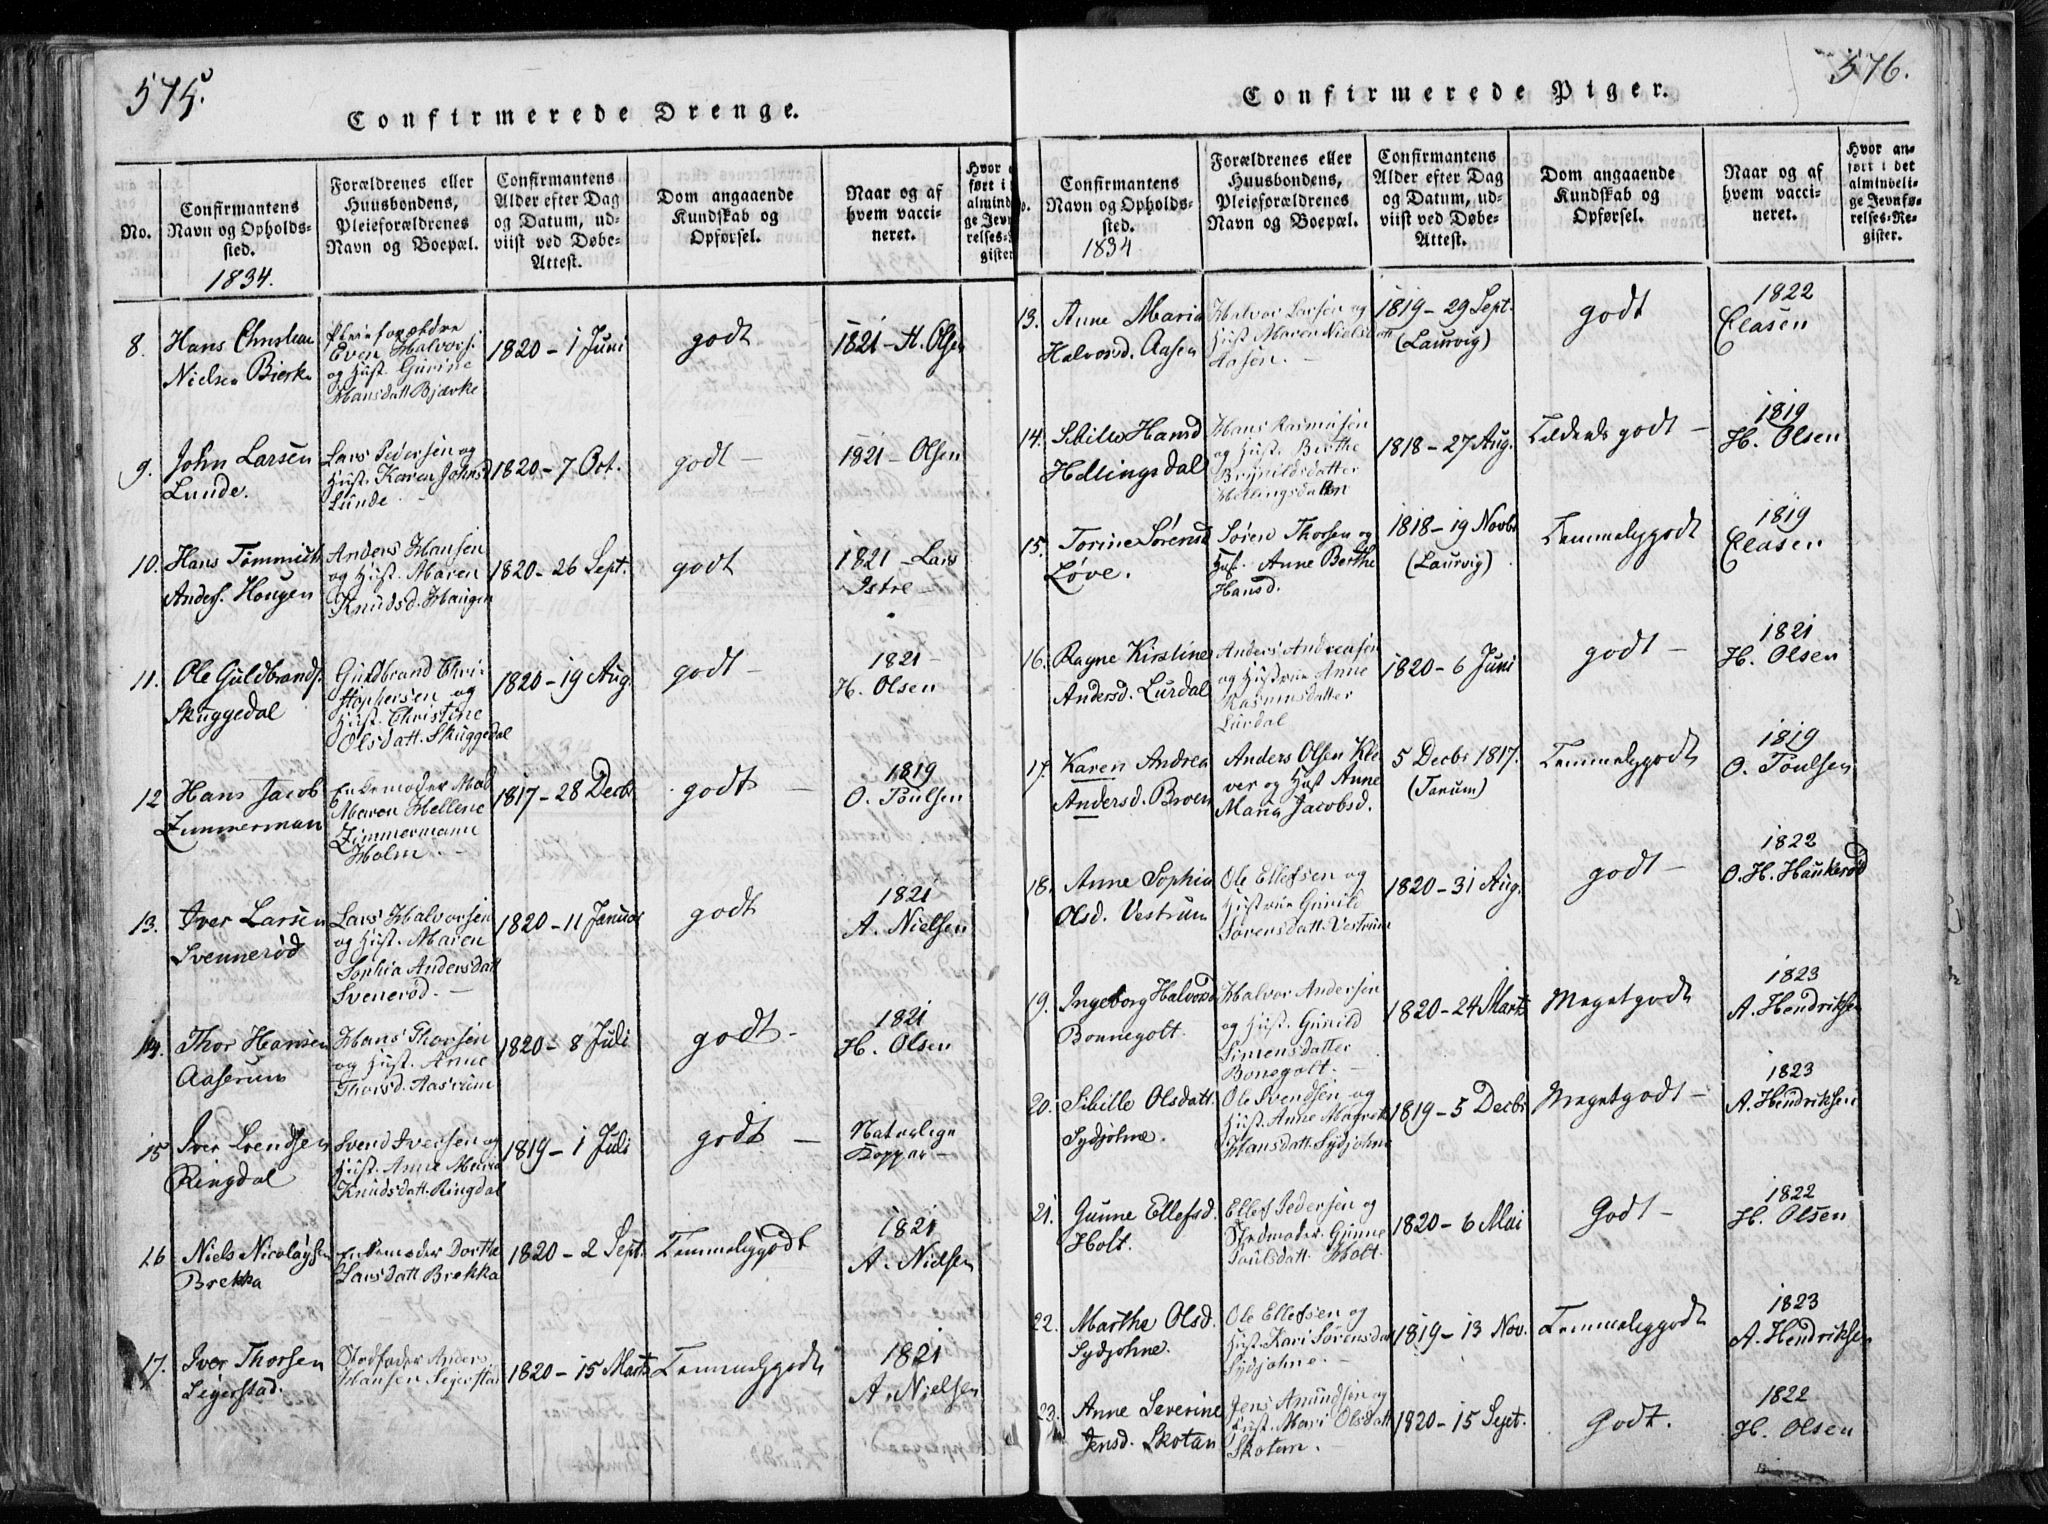 575.
Confirmerede Drenge.
No.
Confirmantens
Navn og Opholds-
sted.
1834.
Forældrenes eller
Huusbondens,
Pleieforældrenes
Navn og Boepæl.
Confirmantens
Alder efter Dag
og Datum, ud-
viist ved Døbe-
Attest.
Dom angaaende
Kundskab og
Opførsel.
Naar og af
hvem vacci-
neret.
Hvor
ført i
almind
ge Jev
relses-
gister
8.
Hans Christian
Nielsen Bierke
Pleieforældre
Even Halvors.
og Hust. Gurine
Hansdatt Bjærke
1820 - 1 Juni
godt
1821 - H. Olsen
9.
John Larsen
Lunde.
Lars Pedersen og
Hust. Karen Johnsd
Lunde
1820 - 7 Oct.
godt -
1821 - Olsen
10.
Hans Tommich
Anders. Hougen
Anders Hansen
og Hust. Maren
Knudsd. Haugen
1820 - 26 Sept.
godt
1821 - Lars
Istre
11.
Ole Guldbrands.
Skuggedal
Guldbrand Chri-
stophersen og
Hust. Christine
Olsdatt. Skuggedal
1820 - 19 Aug.
godt -
1821 -
H. Olsen
12
Hans Jacob
Zimmerman
Enkemoder Mad
Maren Hellene
Zimmermann
Holm. -
1817 - 28 Decbr
godt -
1819
O. Poulsen
13.
Iver Larsen
Svennerød
Lars Halvorsen
og Hust. Maren
Sophia Andersdatt
Svenerød. -
1820 - 11 Januar
godt
1821
A. Nielsen
14.
Thor Hansen
Aaserum
Hans Thorsen
og Hust. Anne
Thorsd. Aasrum
1820 - 8 Juli
godt -
1821
H. Olsen
15
Iver Svendsen
Ringdal
Svend Iversen og
Hust. Anne Maria
Knudsdatt. Ringdal
1819 - 1 Juli
godt -
Naturlige
Kopper -
16
Niels Nicolaysen
Brekka
Enkemoder Dorthe
Larsdatt Brekka
1820 - 2 Sept.
Temmeliggodt
1821
A. Nielsen
17.
Iver Thorsen
Sejerstad.
Stedfader Anders
Hansen Sejerstad
1820 - 15 Marts
Temmeliggodt
1821
A. Nielsen
576.
Confirmerede Piger.
Confirmantens
Navn og Opholds-
sted.
1834
Forældrenes eller
Huusbondens,
Pleieforældrenes
Navn og Boepæl.
Confirmantens
Alder efter Dag
og Datum, ud-
viist ved Døbe-
Attest.
Dom angaaende
Kundskab og
Opførsel.
Naar og af
hvem vacci-
neret.
Hvor an-
ført i det
almindeli-
ge Jevnfø-
relses-Re-
gister.
13.
Anne Maria
Halvorsd. Aasen
Halvor Larsen og
Hust Maren Nielsdatt
Aasen. -
1819 - 29 Sept.
(Laurvig)
godt
1822
Clasen
14.
Sibille Hansd
Hellingsdal
Hans Rasmusen
og Hust. Berthe
Brynildsdatter
1818 - 27 Aug.
godt -
1819
H. Olsen
15.
Torine Sørensd
Løve.
Søren Thorsen og
Hust. Anne Berthe
Hansd.
1818 - 19 Novbr
(Laurvig)
Temmeliggodt
1819
Clasen
16.
Ragne Kirstine
Andersd. Lurdal
Anders Andreasen
og Hustrue Anne
Rasmusdatter
Lurdal
1820 - 6 Juni
godt -
1821
H. Olsen
17.
Karen Andrea
Andersd. Broen
Anders Olsen Kle
ver og Hust Anne
Maria Jacobsd.
5 Decbr 1817.
(Tanum)
Temmeliggodt
1819
O. Poulsen
18.
Anne Sophia
Olsd. Vestrum
Ole Ellefsen og
Hustrue Gunild
Sørensdatt. Vestrum
1820 - 31 Aug.
godt -
1822
O. H. Haukerød
19.
Ingeborg Halvorsd
Bonnegolt.
Halvor Andersen
og Hust. Gunild
Simensdatter
Bonegolt. -
1820 - 24 Marts
Megetgodt
1823
A. Hendriksen
20.
Sibille Olsdatt.
Sydjohne.
Ole Svendsen og
Hust. Anne Magrete
Hansdatt Sydjohne
1819 - 5 Decbr
Megetgodt -
1823
A. Hendriksen
21.
Gunne Ellefsd.
Holt.
Ellef Pedersen og
Stedmoder Gunne
Poulsdatt. Holt.
1820 - 6 Mai
Godt -
1822
H. Olsen
22.
Marthe Olsd.
Sydjohne.
Ole Ellefsen og
Hust. Kari Sørensdatt
Sydjohne. -
1819 - 13 Nov.
Temmeliggodt
1823
A. Hendriksen
23.
Anne Severine
Jensd. Skotan
Jens Amundsen og
Hust. Mari Olsdatt
Skotan. -
1820 - 15 Sept.
Godt.
1822
H. Olsen